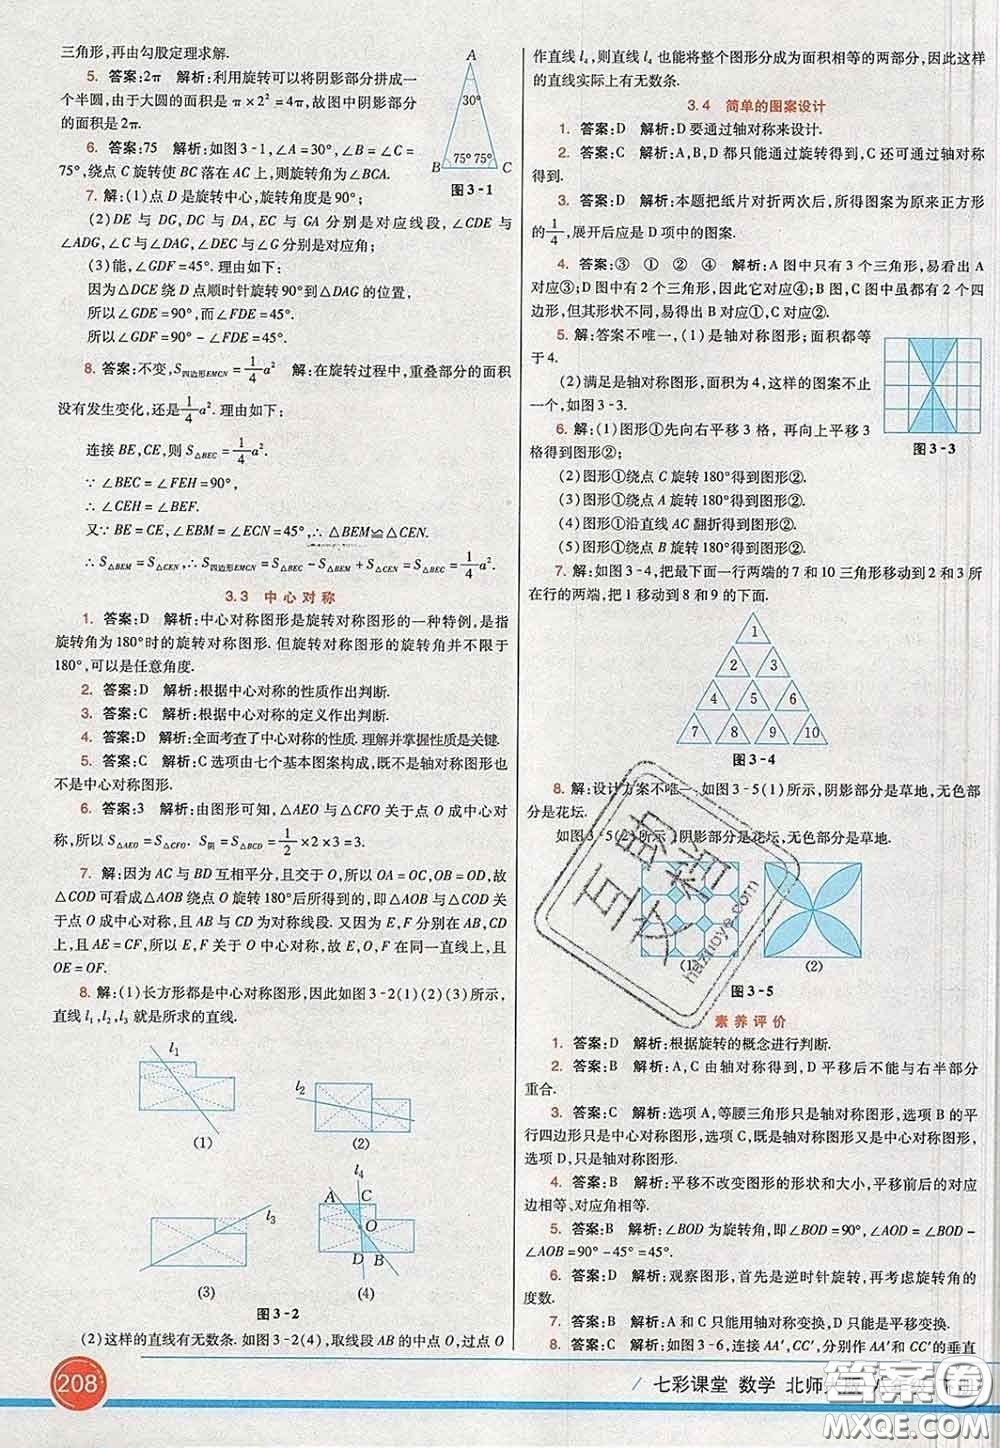 三角形,再由勾股定理求解.
5. 答案:2π 解析:利用旋转可以将阴影部分拼成一
个半圆,由于大圆的面积是 π×2²=4π,故图中阴影部分
的面积是2π.
6. 答案:75 解析:如图3-1,∠A=30°,∠B=∠C=
75°,绕点 C 旋转使 BC 落在 AC 上,则旋转角为∠BCA.
A
30°
75° 75°
B
C
图3-1
7. 解:(1)点 D 是旋转中心,旋转角度是90°;
(2)DE 与 DG,DC 与 DA,EC 与 GA 分别是对应线段,∠CDE 与
∠ADG,∠C 与∠DAG,∠DEC 与∠G 分别是对应角;
(3)能,∠GDF=45°.理由如下:
因为△DCE 绕 D 点顺时针旋转90°到△DAG 的位置,
所以∠GDE=90°,而∠FDE=45°.
所以∠GDF=90°-∠FDE=45°.
8. 答案:不变,S四边形EMCN=1/4a² 解:在旋转过程中,重叠部分的面积
没有发生变化,还是1/4a².理由如下:
连接 BE,CE,则 S△BEC=1/4a².
∵∠BEC=∠FEH=90°,
∴∠CEH=∠BEF.
又∵BE=CE,∠EBM=∠ECN=45°,∴△BEM≌△CEN.
∴S△BEM=S△CEN,∴S四边形EMCN=S△BEC-S△BEM+S△CEN=S△BEC=1/4a².
3.3 中心对称
1. 答案:D 解析:中心对称图形是旋转对称图形的一种特例,是指
旋转角为180°时的旋转对称图形.但旋转对称图形的旋转角并不限于
180°,可以是任意角度.
2. 答案:D 解析:根据中心对称的性质作出判断.
3. 答案:C 解析:根据中心对称的定义作出判断.
4. 答案:D 解析:全面考查了中心对称的性质.理解并掌握性质是关键.
5. 答案:C 解析:C 选项由七个基本图案构成,既不是轴对称图形也
不是中心对称图形.
6. 答案:3 解析:由图形可知,△AEO 与△CFO 关于点 O 成中心对
称,所以 S△AEO=S△CFO.S阴=S△BCD=1/2×2×3=3.
7. 解:因为 AC 与 BD 互相平分,且交于 O,所以 OA=OC,OB=OD,故
△COD 可看成△AOB 绕点 O 旋转180°后所得到的,即△AOB 与△COD 关
于点 O 成中心对称,且 AB 与 CD 为对称线段.又因为 E,F 分别在 AB,CD
上,且 AE=CF,所以 E,F 关于点 O 对称,所以 E,O,F 在同一直线上,且
OE=OF.
8. 解:(1)长方形都是中心对称图形,因此如图3-2(1)(2)(3)所示,
直线 l₁,l₂,l₃ 就是所求的直线.
l₁
(1)
l₂
(2)
l₃
(3)
l₄
A
C
O
D
B
(4)
图3-2
(2)这样的直线有无数条.如图3-2(4),取线段 AB 的中点 O,过点 O
作直线 l₄,则直线 l₄ 也能将整个图形分成面积相等的两部分,因此这样
的直线实际上有无数条.
3.4 简单的图案设计
1. 答案:D 解析:D 要通过轴对称来设计.
2. 答案:C 解析:A,B,D 都只能通过旋转得到,C 还可通过轴对称
得到.
3. 答案:D 解析:本题把纸片对折两次后,所得图案为原来正方形
的1/4,展开后应是 D 项中的图案.
4. 答案:③ ① ② ④ 解析:A 图中只有3个三角形,易看出 A
对应③;D 图中有2个三角形,因此它对应④;B 图中 C 图中虽都有2个四
边形,但其形状不同,易得出 B 对应①,C 对应②.
5. 解:答案不唯一,(1)是轴对称图形;面积都等
于4.
(2)满足是轴对称图形,面积为4,这样的图案不止
一个,如图3-3.
图3-3
6. 解:(1)图形①先向右平移3格,再向上平移3
格得到图形②;
(2)图形①绕点 C 旋转180°得到图形②.
(3)图形①绕点 A 旋转180°得到图形②.
(4)图形①沿直线 AC 翻折得到图形②.
(5)图形①绕点 B 旋转180°得到图形②.
7. 解:如图3-4,把最下面一行两端的7和10三角形移动到2和3所
在行的两端,把1移动到8和9的下面.
1
2 3
4 5 6
7 8 9 10
图3-4
8. 解:设计方案不唯一.如图3-5(1)所示,阴影部分是草地,无色部
分是花坛.
如图3-5(2)所示,阴影部分是花坛,无色部分是草地.
(1)
(2)
图3-5
素养评价
1. 答案:D 解析:根据旋转的概念进行判断.
2. 答案:B 解析:A,C 由轴对称得到,D 平移后不能与右半部分
重合.
3. 答案:C 解析:选项 A,等腰三角形只是轴对称图形,选项 B 的平
行四边形只是中心对称图形,选项 C,既是轴对称图形又是中心对称图形,
选项 D,只是轴对称图形.
4. 答案:B 解析:平移不改变图形的形状和大小,平移前后的对应
边相等、对应角相等.
5. 答案:B 解析:∠BOD 为旋转角,即∠BOD=90°,∠AOD=∠BOD-
∠AOB=90°-45°=45°.
6. 答案:D 解析:观察图形,首先是逆时针旋转,再考虑旋转角
的度数.
7. 答案:B 解析:A 和 C 只能用轴对称变换,D 只能是平移变换.
8. 答案:C 解析:如图3-6,连接 AA′,CC′,分别作 AA′和 CC′的垂直
208
七彩课堂 数学 北师
答案圈
MXQE.COM
hazuoye.com